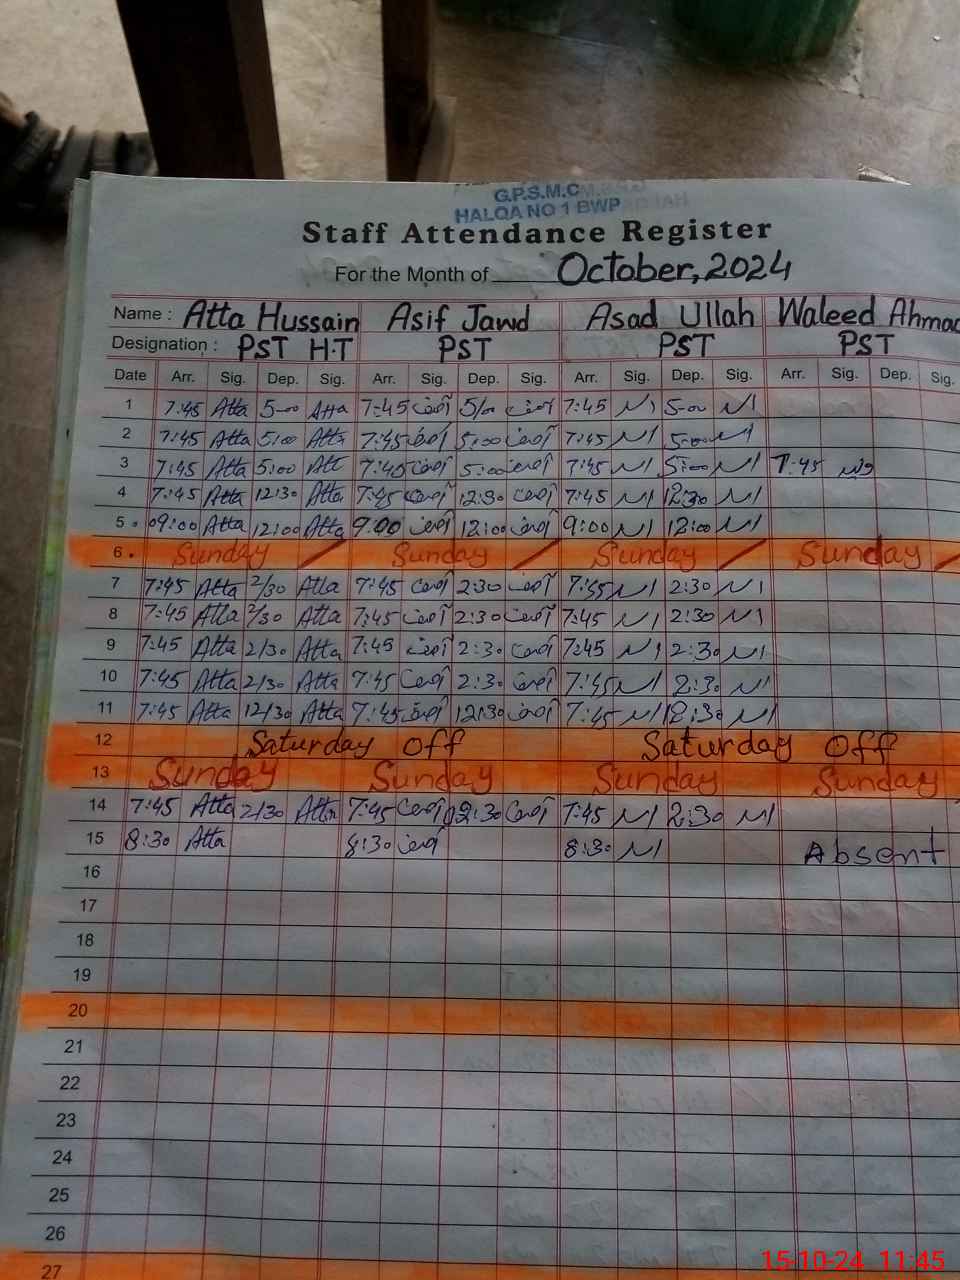 G.P.S.M.C
HALQA NO 1 BWP
Staff Attendance Register
For the Month of October, 2024
Name : Atta Hussain Asif Jawd Asad Ullah Waleed Ahmad
Designation : PST H.T PST PST PST
Date Arr. Sig. Dep. Sig. Arr. Sig. Dep. Sig. Arr. Sig. Dep. Sig. Arr. Sig. Dep. Sig.
1 7:45 Atta 5-00 Atta 7:45 آصف 5/00 آصف 7:45 5-00
2 7:45 Atta 5:00 Atta 7:45 آصف 5:00 آصف 7:45 5-00
3 7:45 Atta 5:00 Att 7:45 آصف 5:00 آصف 7:45 5:00 7:45
4 7:45 Atta 12:30 Atta 7:45 آصف 12:30 آصف 7:45 12:30
5 . 09:00 Atta 12:00 Atta 9:00 آصف 12:00 آصف 9:00 12:00
6 . Sunday Sunday Sunday Sunday
7 7:45 Atta 2/30 Atta 7:45 آصف 2:30 آصف 7:45 2:30
8 7:45 Atta 2/30 Atta 7:45 آصف 2:30 آصف 7:45 2:30
9 7:45 Atta 2/30 Atta 7:45 آصف 2:30 آصف 7:45 2:30
10 7:45 Atta 2/30 Atta 7:45 آصف 2:30 آصف 7:45 2:30
11 7:45 Atta 12/30 Atta 7:45 آصف 12:30 آصف 7:45 12:30
12 Saturday off Saturday off
13 Sunday Sunday Sunday Sunday
14 7:45 Atta 2/30 Atta 7:45 آصف 02:30 آصف 7:45 2:30
15 8:30 Atta 8:30 آصف 8:30 Absent
16
17
18
19
20
21
22
23
24
25
26
27
15-10-24 11:45